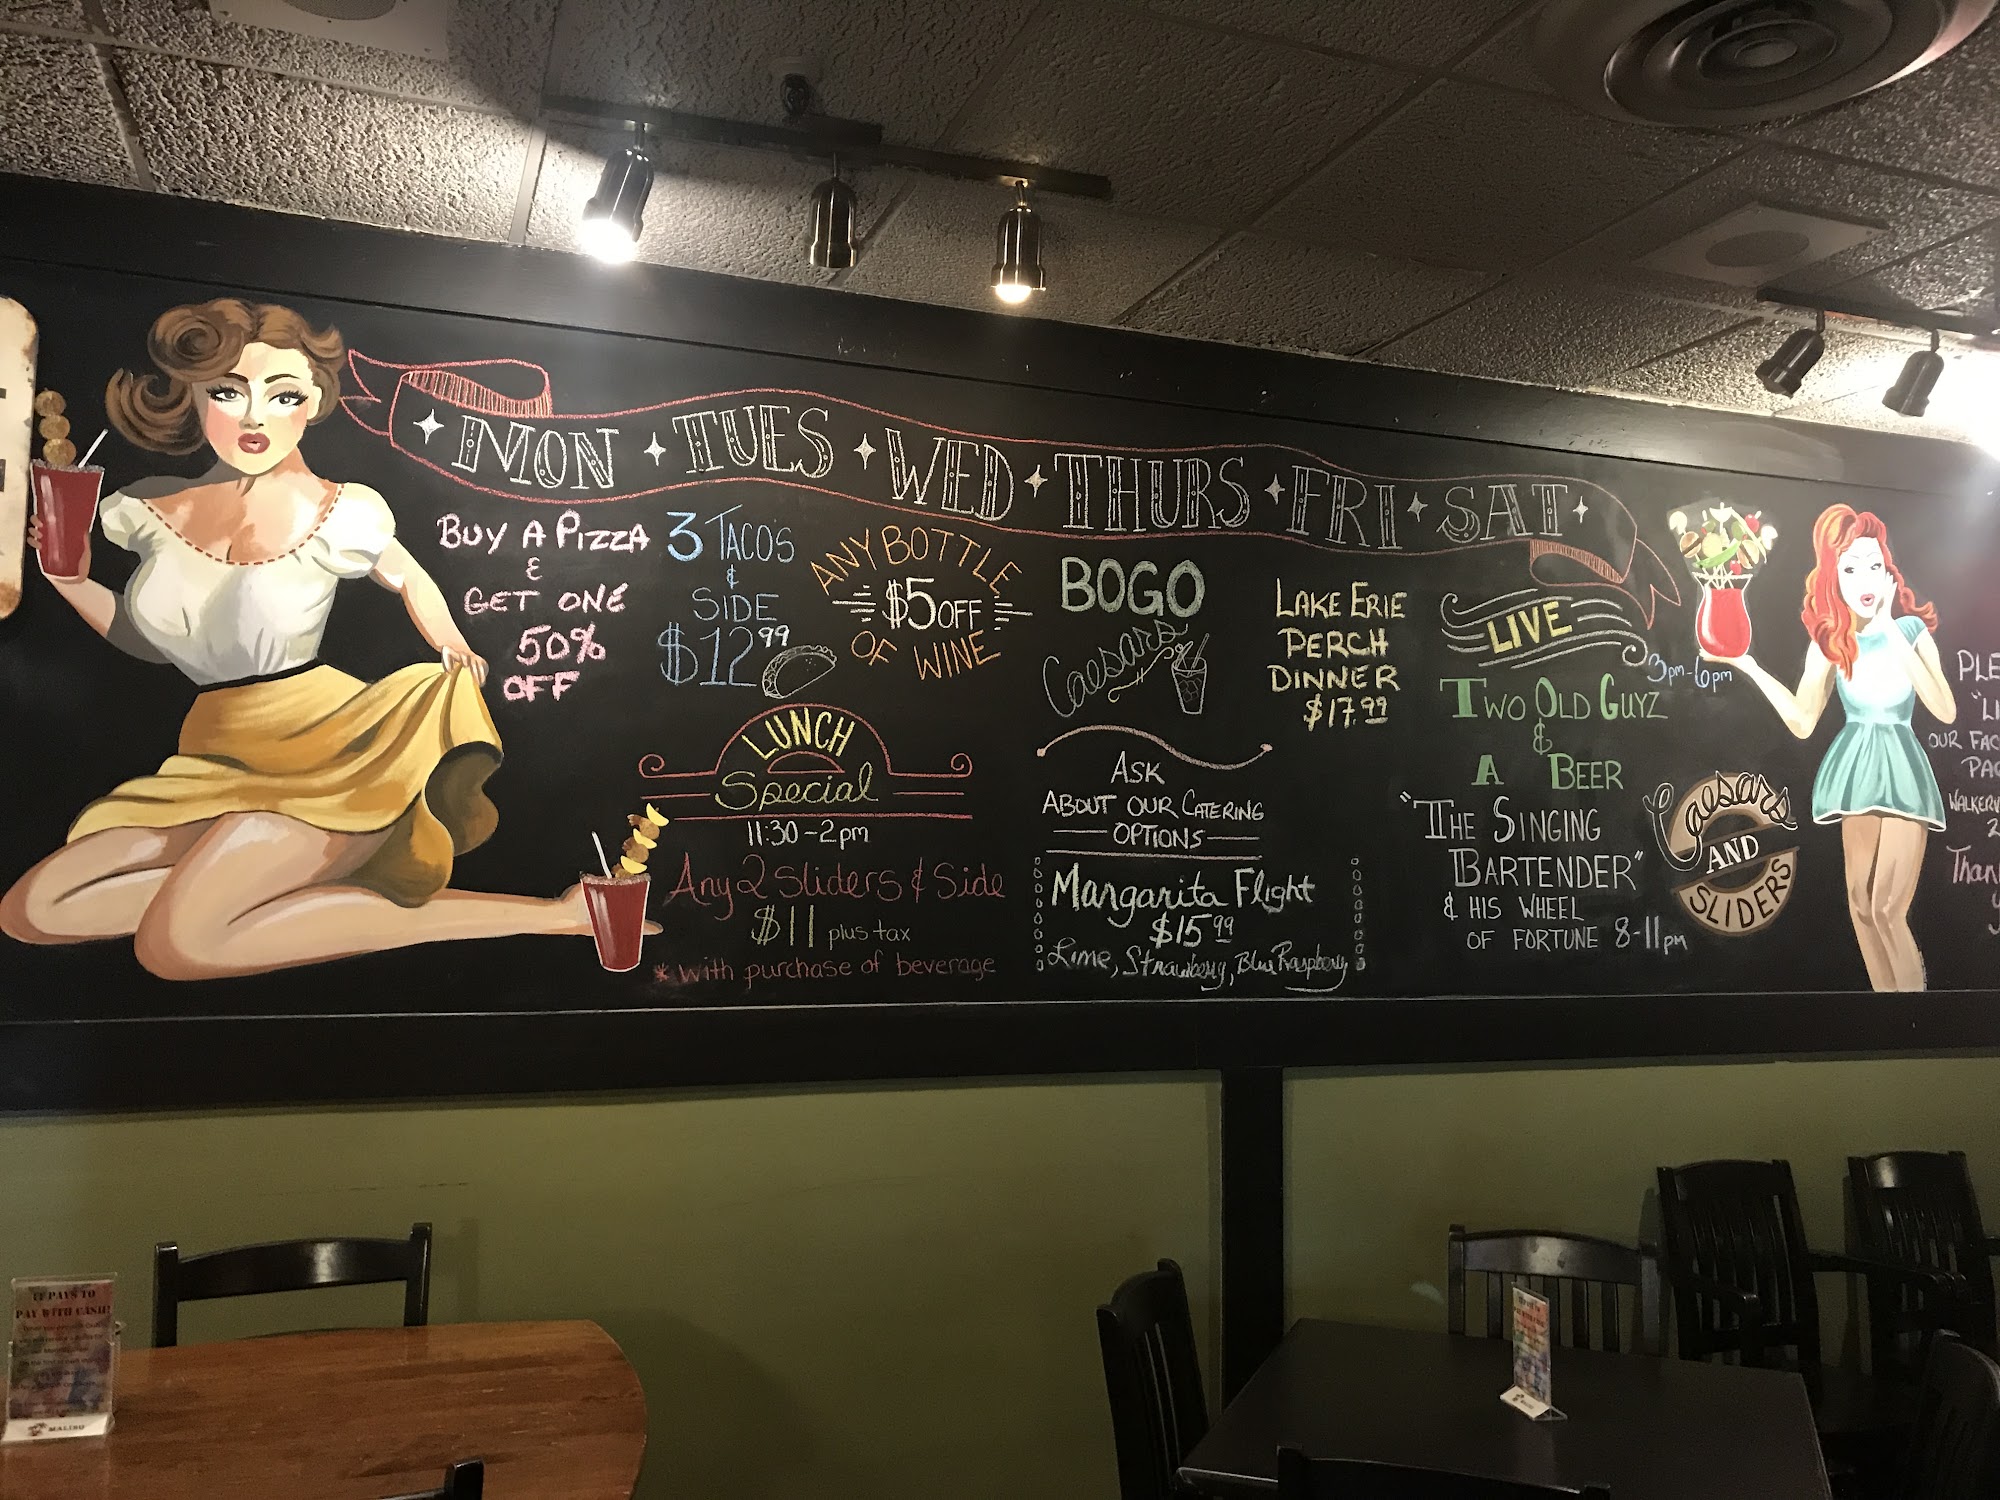 MON TUES WED THURS FRI SAT
BUY A PIZZA
&
GET ONE
50%
OFF
3 TACO'S
&
SIDE
$12.99
ANY BOTTLE
$5 OFF
OF WINE
BOGO
Caesars
LAKE ERIE
PERCH
DINNER
$17.99
LIVE
3pm-6pm
TWO OLD GUYZ
&
A BEER
"THE SINGING
BARTENDER"
& HIS WHEEL
OF FORTUNE 8-11pm
LUNCH
Special
11:30-2pm
Any 2 Sliders & Side
$11 plus tax
*with purchase of beverage
ASK
ABOUT OUR CATERING
OPTIONS
Margarita Flight
$15.99
Lime, Strawberry, Blue Raspberry
Caesars
AND
SLIDERS
OUR
IT PAYS TO
PAY WITH CASH!
MALIBU